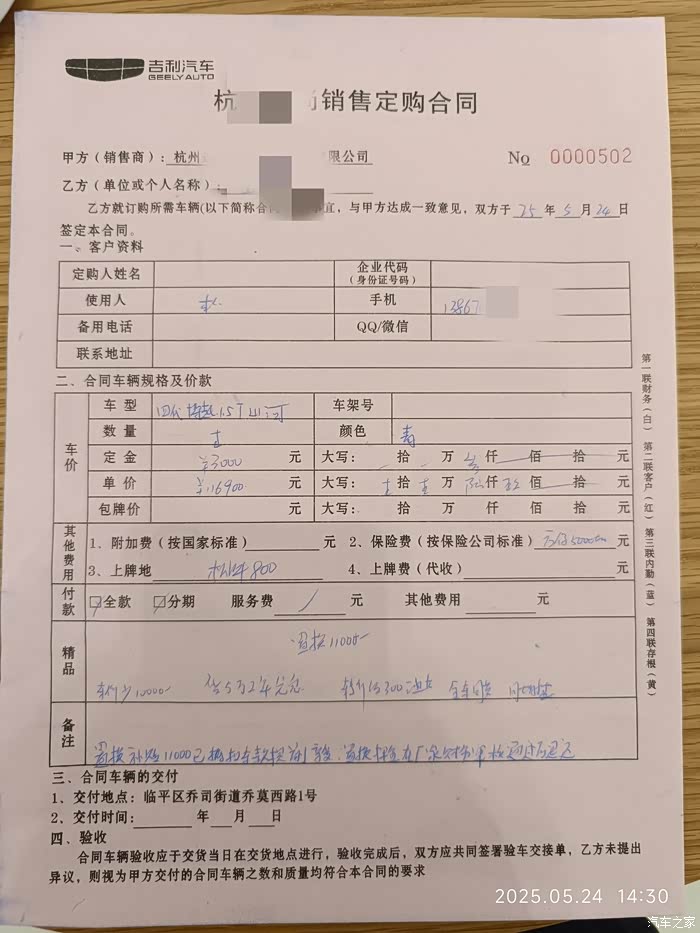 吉利汽车
GEELY AUTO
杭 销售定购合同
甲方（销售商）：杭州 有限公司
No 0000502
乙方（单位或个人名称）：
乙方就订购所需车辆(以下简称合同 宜，与甲方达成一致意见，双方于 25 年 5 月 24 日
签定本合同。
一、客户资料
定购人姓名 企业代码（身份证号码）
使用人 手机 13867
备用电话 QQ/微信
联系地址
二、合同车辆规格及价款
车价
车 型 四代 1.5T 车架号
数 量 颜色 青
定 金 ¥3000 元 大写： 拾 万 叁 仟 佰 拾 元
单 价 ¥116900 元 大写： 拾 万 陆 仟 玖 佰 拾 元
包牌价 元 大写： 拾 万 仟 佰 拾 元
其他费用
1、附加费（按国家标准） 元 2、保险费（按保险公司标准） 5000 元
3、上牌地 杭州 800 4、上牌费（代收） 元
付款 全款 分期 服务费 / 元 其他费用 元
精品
置换11000
10000 5万2年 300
备注
置换补贴11000已
三、合同车辆的交付
1、交付地点：临平区乔司街道乔莫西路1号
2、交付时间： 年 月 日
四、验收
合同车辆验收应于交货当日在交货地点进行，验收完成后，双方应共同签署验车交接单，乙方未提出
异议，则视为甲方交付的合同车辆之数和质量均符合本合同的要求
第一联财务(白) 第二联客户(红) 第三联内勤(蓝) 第四联存根(黄)
2025.05.24 14:30
汽车之家